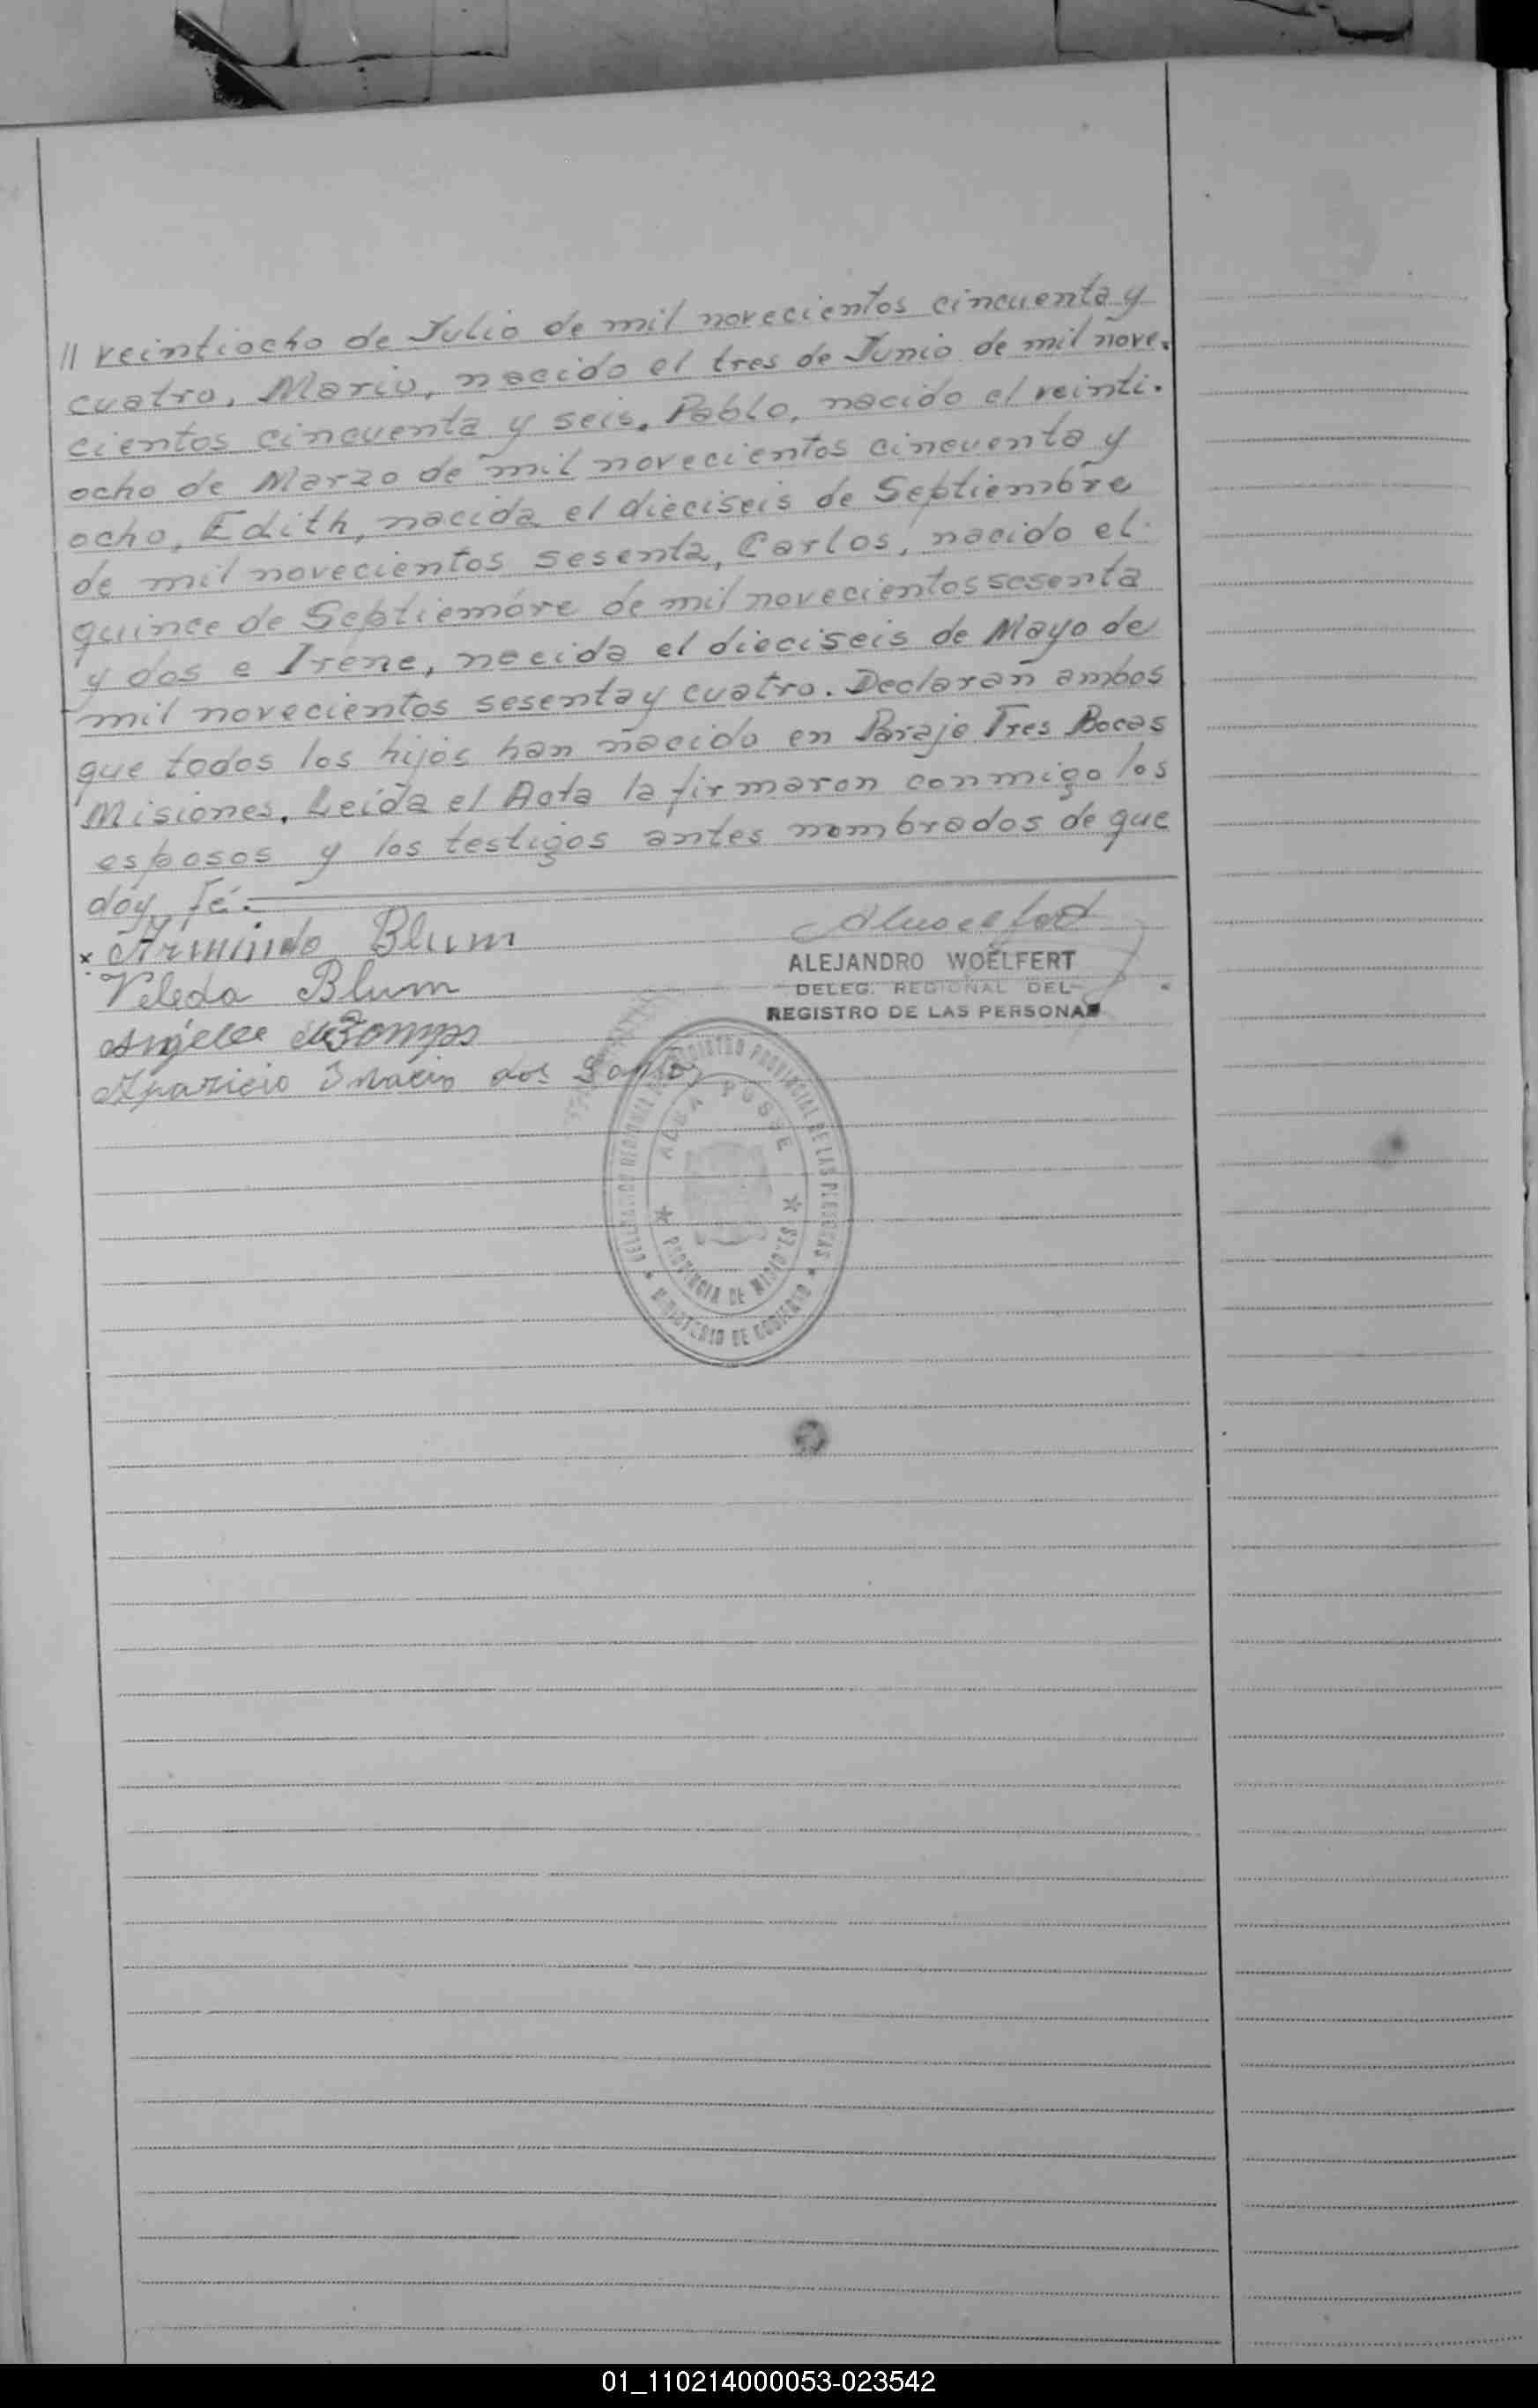 // veintiocho de Julio de mil novecientos cincuenta y
cuatro, Mario, nacido el tres de Junio de mil nove-
cientos cincuenta y seis, Pablo, nacido el veinti-
ocho de Marzo de mil novecientos cincuenta y
ocho, Edith, nacida el dieciseis de Septiembre
de mil novecientos sesenta, Carlos, nacido el
quince de Septiembre de mil novecientos sesenta
y dos e Irene, nacida el dieciseis de Mayo de
mil novecientos sesenta y cuatro. Declaran ambos
que todos los hijos han nacido en Paraje Tres Bocas
Misiones. Leida el Acta la firmaron conmigo los
esposos y los testigos antes nombrados de que
doy fé.
x Armindo Blum
Veleda Blum
Aparicio Inacio dos Santos
ALEJANDRO WOELFERT
DELEG. REGIONAL DEL
REGISTRO DE LAS PERSONAS
REGISTRO PROVINCIAL DE LAS PERSONAS
ALBA POSSE
PROVINCIA DE MISIONES
MINISTERIO DE GOBIERNO
01_110214000053-023542